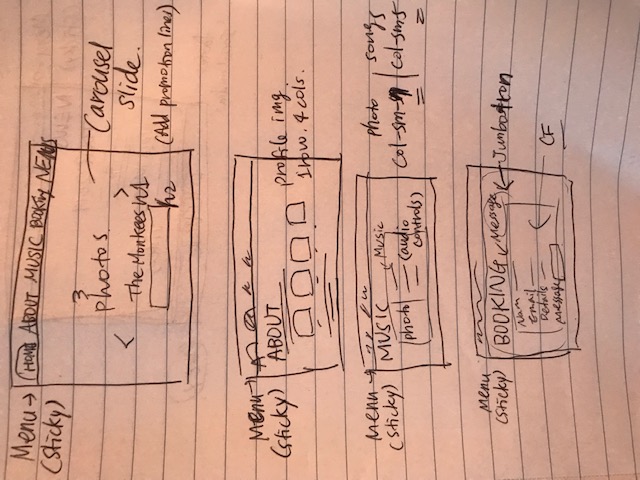 Menu → HOME ABOUT MUSIC BOOKING NEWS
(sticky)
3
photos.
< >
The Monkees h1
h2
Carousel
slide.
(Add promotion lines)
Menu →
(sticky)
ABOUT
profile img.
1row. 4 cols.
Menu →
(sticky)
MUSIC
photo
Music
(audio
controls)
photo
col-sm-
songs
col-sm-5
menu
(sticky)
BOOKING
Message
Jumbotron
Nam
Email
Details
Message
CF